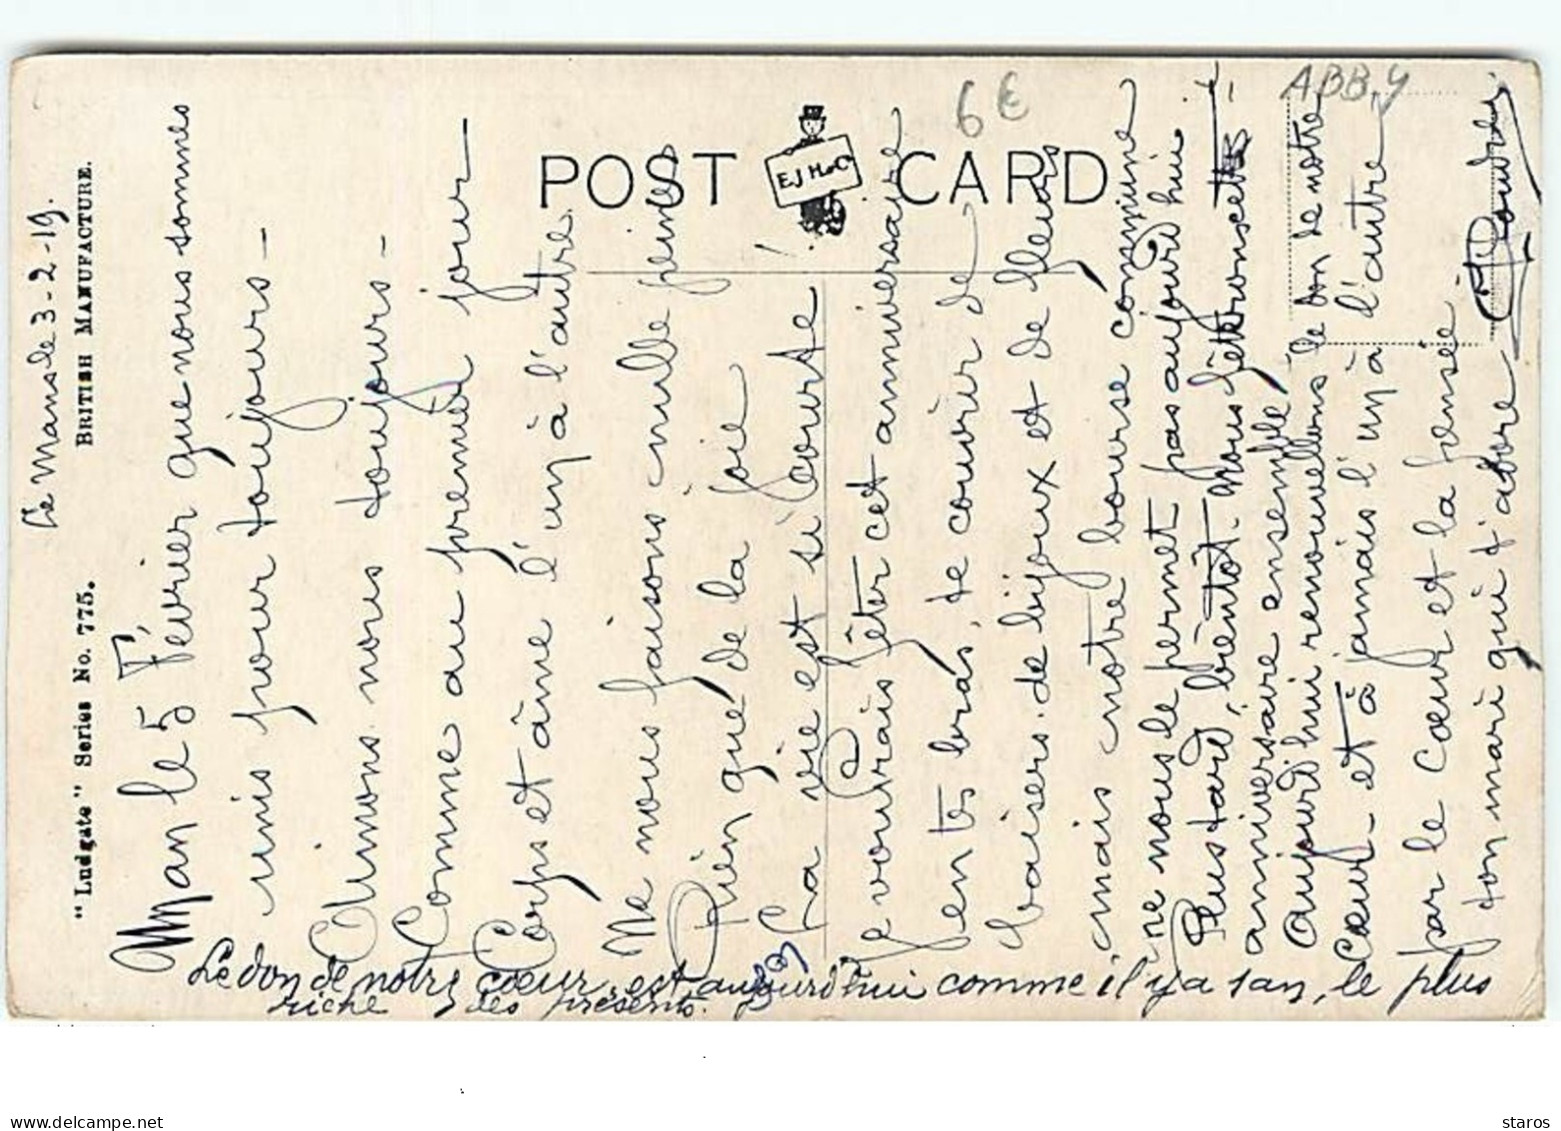 Le Mans le 3-2-19.
"Ludgate" Series No. 775.
BRITISH MANUFACTURE.
POST CARD
EJH&Co
6€
ABB.4
le 5 Février que nous sommes
unis pour toujours -
Aimons nous toujours -
Comme au premier jour
Corps et âme l'un à l'autre.
Ne nous faisons mille peines
Rien que de la joie
La vie est si courte!
Je voudrais fêter cet anniversaire
en tes bras, te couvrir de
baisers, de bijoux et de fleurs
mais notre bourse comprime
ne nous le permet pas aujourd'hui
Plus tard, bientôt. Nous fêterons cet
anniversaire ensemble
Aujourd'hui renouvellons le don de notre
Cœur - et à jamais l'un à l'autre
par le cœur et la pensée
ton mari qui t'adore
Le don de notre cœur, est aujourd'hui comme il y a 1 an, le plus
riche des présents.
staros
delcampe.net